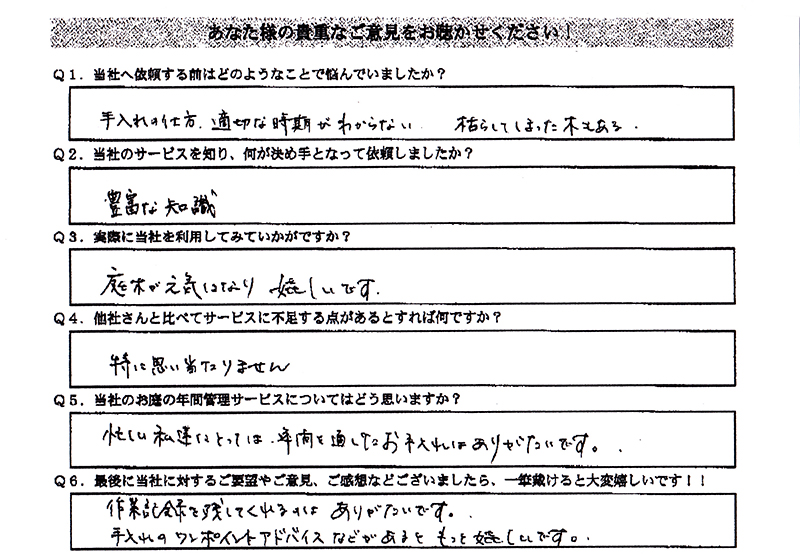 あなた様の貴重なご意見をお聴かせください！
Q1．当社へ依頼する前はどのようなことで悩んでいましたか？
手入れの仕方、適切な時期がわからない 枯らしてしまった木もある．
Q2．当社のサービスを知り、何が決め手となって依頼しましたか？
豊富な知識
Q3．実際に当社を利用してみていかがですか？
庭木が元気になり 嬉しいです．
Q4．他社さんと比べてサービスに不足する点があるとすれば何ですか？
特に思い当たりません
Q5．当社のお庭の年間管理サービスについてはどう思いますか？
忙しい私達にとっては、年間を通したお手入れはありがたいです。．
Q6．最後に当社に対するご要望やご意見、ご感想などございましたら、一筆戴けると大変嬉しいです！！
作業記録を残してくれるのは ありがたいです。．
手入れのワンポイントアドバイスなどがあると もっと嬉しいです。．